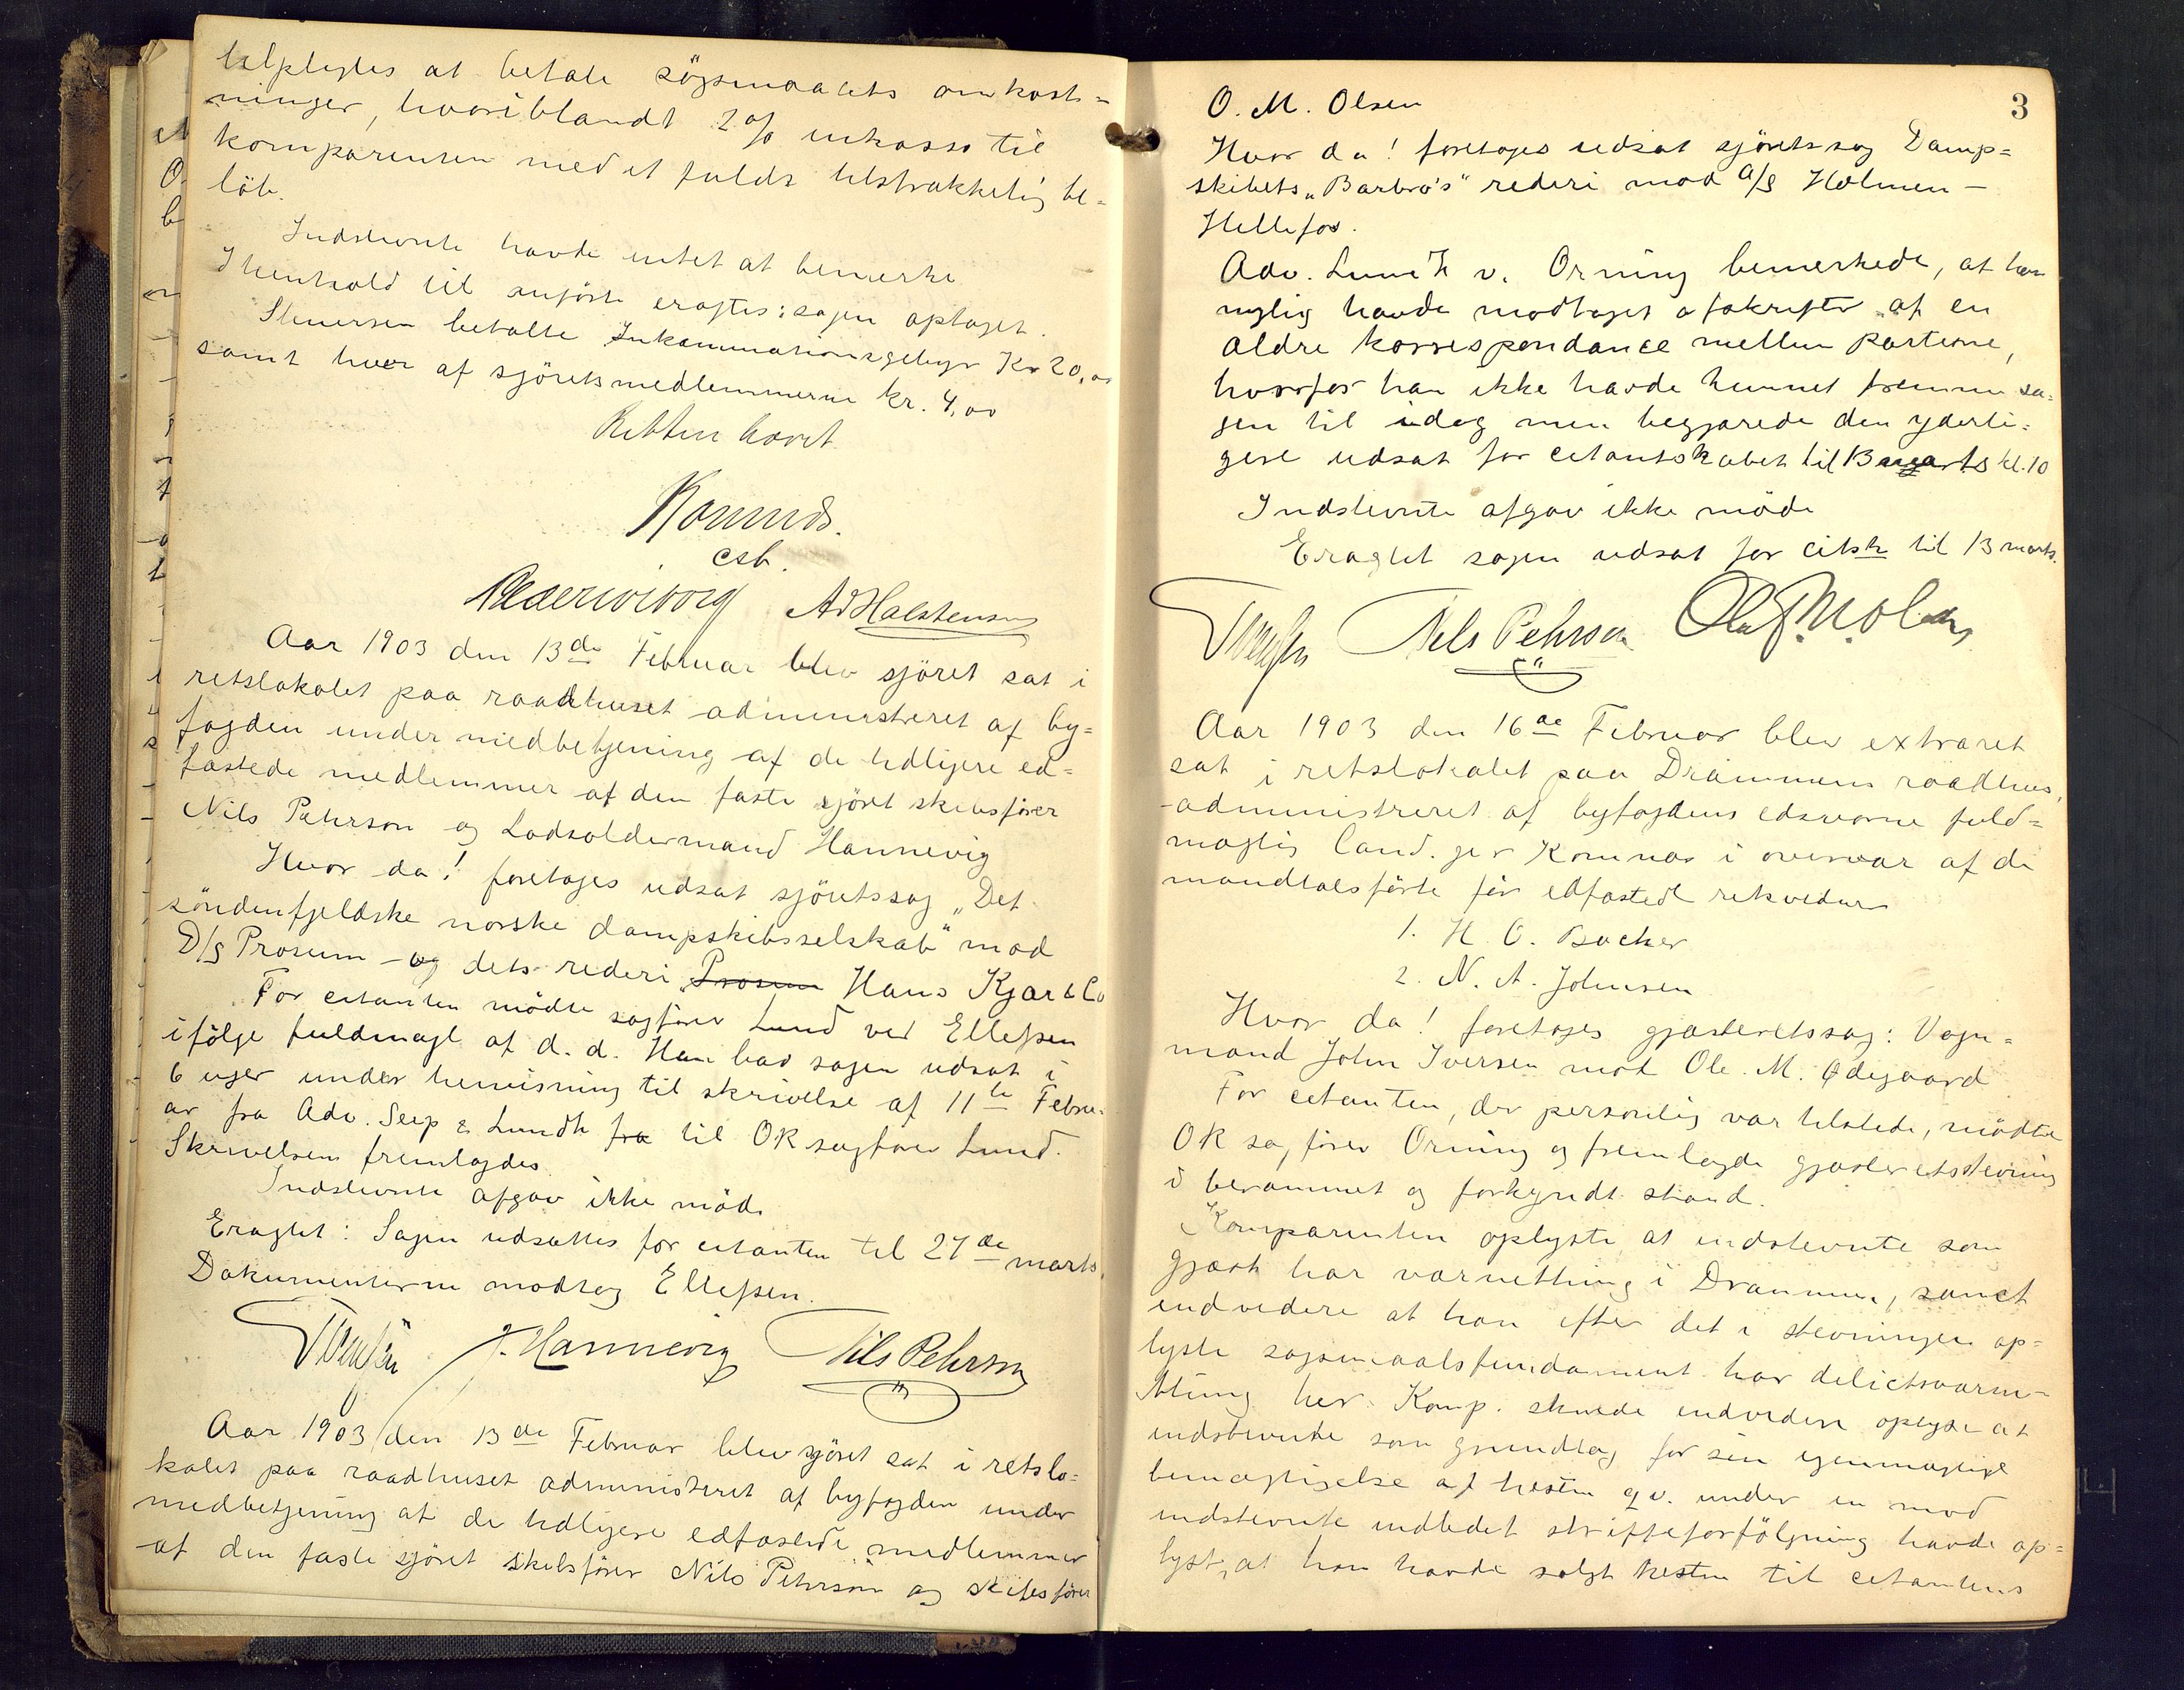 tilpligtes at betale søgsmaalets omkost=
ninger, hvoriblandt 2 % inkasso til
komparenten med et fuldt tilstrækkelig be=
løb.
Indstevnte havde intet at bemerke
I henhold til anførte eragtes: sagen optaget.
Stenersen betalte Inkaminationsgebyr Kr 20,00
samt hver af sjøretsmedlemmerne kr. 4,00
Retten hævet
Komnæs.
esb.
A Halstensen
Aar 1903 den 13de Februar blev sjøret sat i
retslokalet paa raadhuset administreret af by=
fogden under medbetjening af de tidligere ed=
fæstede medlemmer af den faste sjøret skibsfører
Nils Pehrson og Lodsoldermand Hannevig
Hvor da! foretoges udsat sjøretssag "Det
søndenfjeldske norske dampskibsselskab" mod
D/S Prosum og dets rederi Prosum Hans Kjær & Co
For citanten mødte sagfører Lund ved Ellefsen
ifølge fuldmagt af d. d. Han bad sagen udsat i
6 uger under henvisning til skrivelse af 11te Febru=
ar fra Adv. Seip & Lundh fra til OR sagfører Lund.
Skrivelsen fremlagdes
Indstevnte afgav ikke møde
Eragtet: Sagen udsættes for citanten til 27de marts.
Dokumenterne modtog Ellefsen.
J. Hannevig Nils Pehrson
Aar 1903 den 13de Februar blev sjøret sat i retslo=
kalet paa raadhuset administreret af byfogden under
medbetjening af de tidligere edfæstede medlemmer
af den faste sjøret skibsfører Nils Pehrson og skibsfører
3
O. M. Olsen
Hvor da! foretoges udsat sjøretssag Damp=
skibets "Barbro's" rederi mod A/S Holmen -
Hellefos.
Adv. Lundh v. Orning bemerkede, at han
nylig havde modtaget afskrifter af en
ældre korrespondance mellem parterne,
hvorfor han ikke havde kunnet fremme sa=
gen til idag men begjærede den yderli=
gere udsat for citantskabet til 13 marts kl. 10
Indstevnte afgav ikke møde
Eragtet sagen udsat for citsk til 13 marts.
Nils Pehrson Olaf M. Olsen
Aar 1903 den 16de Februar blev extraret
sat i retslokalet paa Drammens raadhus,
administreret af byfogdens edsvorne fuld=
mægtig Cand. jur Komnæs i overvær af de
mandtalsførte før edfæstede retsvidner
1. H. O. Backer
2. N. A. Johnsen
Hvor da! foretoges gjæsteretssag: Vogn=
mand John Iversen mod Ole. M. Ødegaard
For citanten, der personlig var tilstede, mødte
OR sagfører Orning og fremlagde gjæsteretsstevning
i berammet og forkyndt stand.
Komparenten oplyste at indstevnte som
gjæst har varnething i Drammen, samt
endvidere at han efter det i stevningen op=
lyste søgsmaalsfundament har delictsværne=
thing her. Komp. skulde endvidere oplyse at
indstevnte som grundlag for sin egenmægtige
bemægtigelse af hesten q.v. under en mod
indstevnte indledet strafforfølgning havde op=
lyst, at han havde solgt hesten til citantens